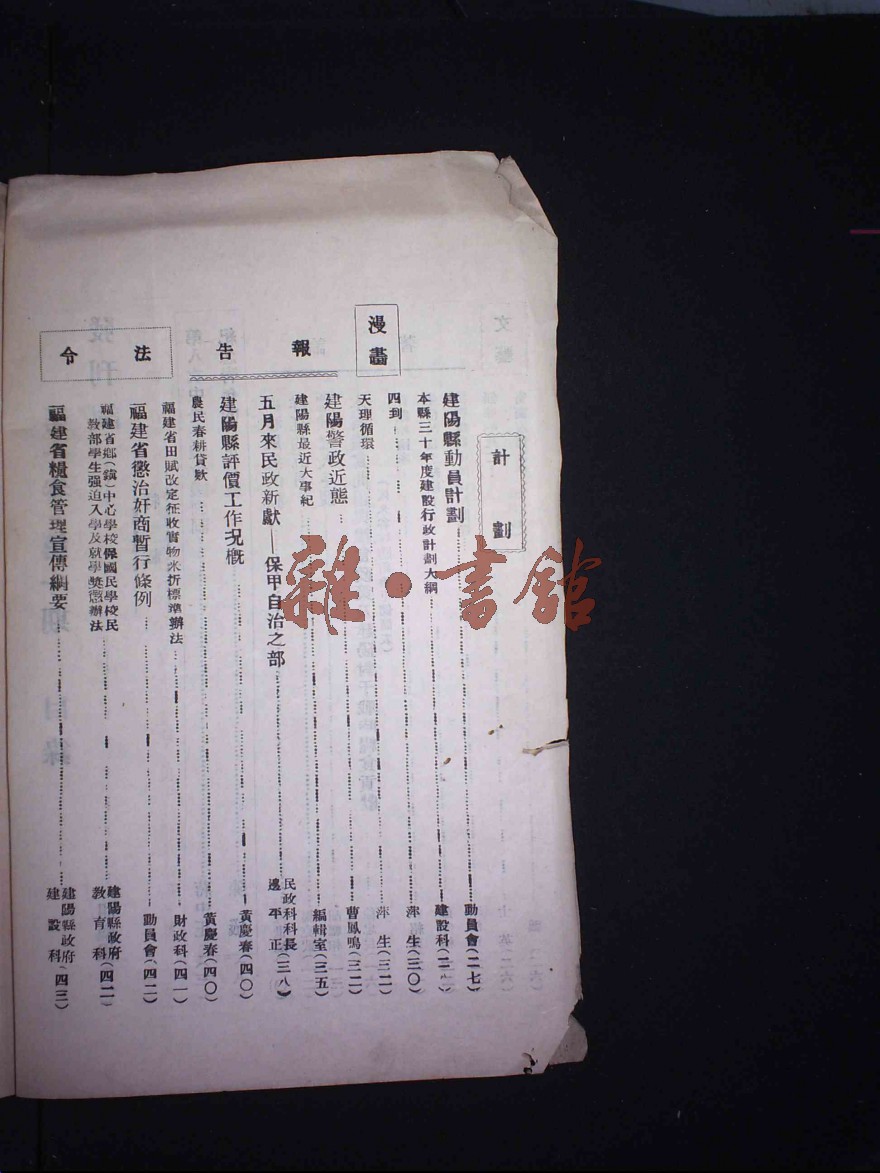 計劃
建陽縣動員計劃 動員會(二七)
本縣三十年度建設行政計劃大綱 建設科
漫畵
四到 生(三〇)
天理循環 生(三二)
報告
建陽警政近態 曹鳳鳴(三二)
建陽縣最近大事紀 編輯室(三五)
五月來民政新獻——保甲自治之部 民政科科長 邊平正(三八)
建陽縣評價工作況概 黃慶春(四〇)
農民春耕貸款 黃慶春(四〇)
法令
福建省田賦改定征收實物米折標準辦法 財政科(四一)
福建省懲治奸商暫行條例 動員會(四二)
福建省鄉(鎮)中心學校保國民學校民
教部學生强迫入學及就學獎懲辦法 建陽縣政府 教育科(四二)
福建省糧食管理宣傳綱要 建陽縣政府 建設科(四三)
雜·書館